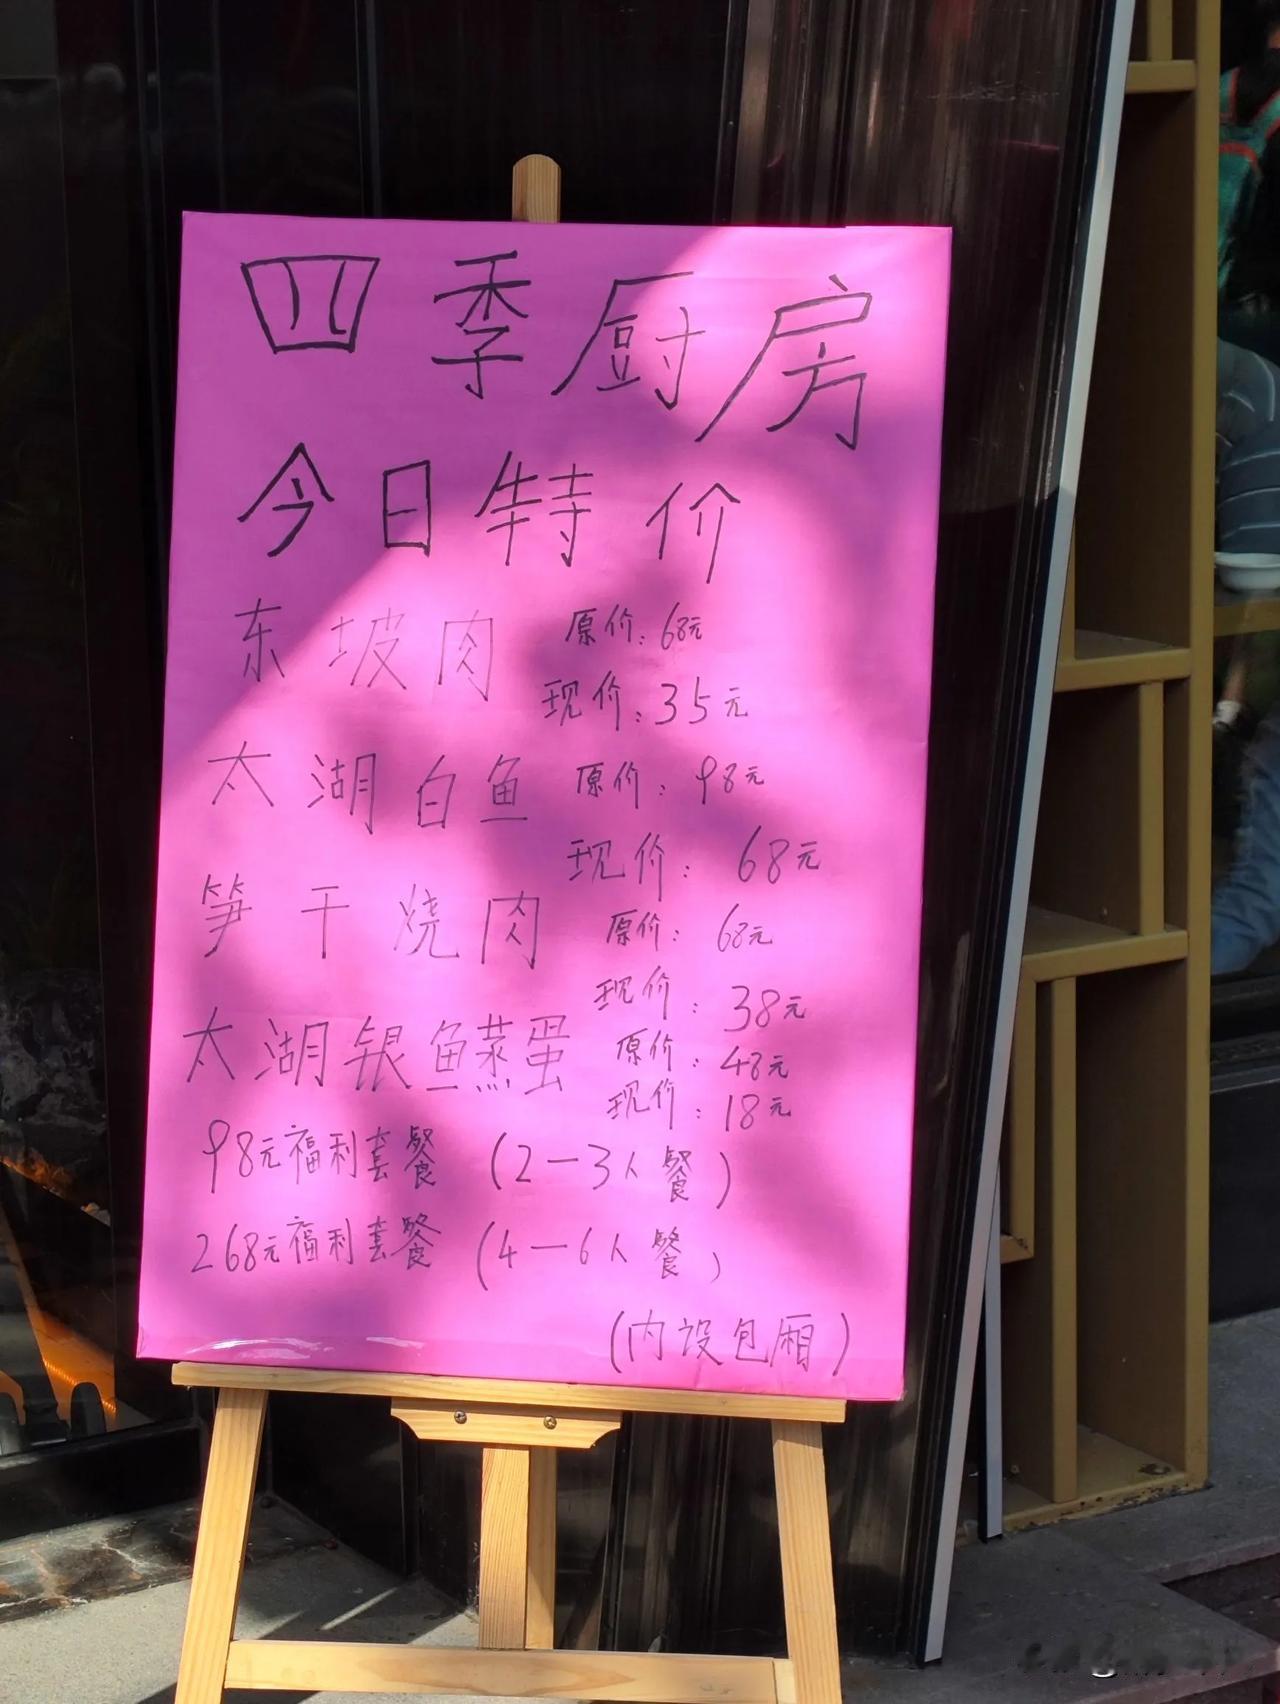 四季厨房
今日特价
东坡肉 原价:68元
现价:35元
太湖白鱼 原价:98元
现价:68元
笋干烧肉 原价:68元
现价:38元
太湖银鱼蒸蛋 原价:48元
现价:18元
98元福利套餐 (2一3人餐)
268元福利套餐 (4一6人餐)
(内设包厢)